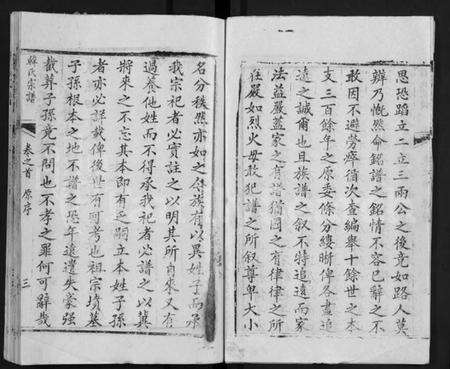 思恐蹈立二立三兩公之後竟如路人莫
辨乃慨然命銘譜之銘情不容已辭之不
敢因不避勞瘁循次查編舉十餘世之本
支三百餘年之原委條分縷晰俾各盡追
遠之誠爾也且族譜之叙不特追遠而家
法益嚴蓋家之有譜猶國之有律律之所
在嚴如烈火毋敢犯譜之所叙尊卑大小
名分秩然亦如之倘族有以異姓子而承
我宗祀者必實註之以明其所自來又有
過養他姓而不得承我祀者必譜之以冀
將來之不忘其本即有乏嗣立本姓子孫
者亦必詳載俾後世有可考也祖宗墳墓
子孫根本之地不譜之恐年遠遺失豪强
截葬子孫竟不問也不孝之罪何可辭哉
氏宗譜 卷之首 原序 三